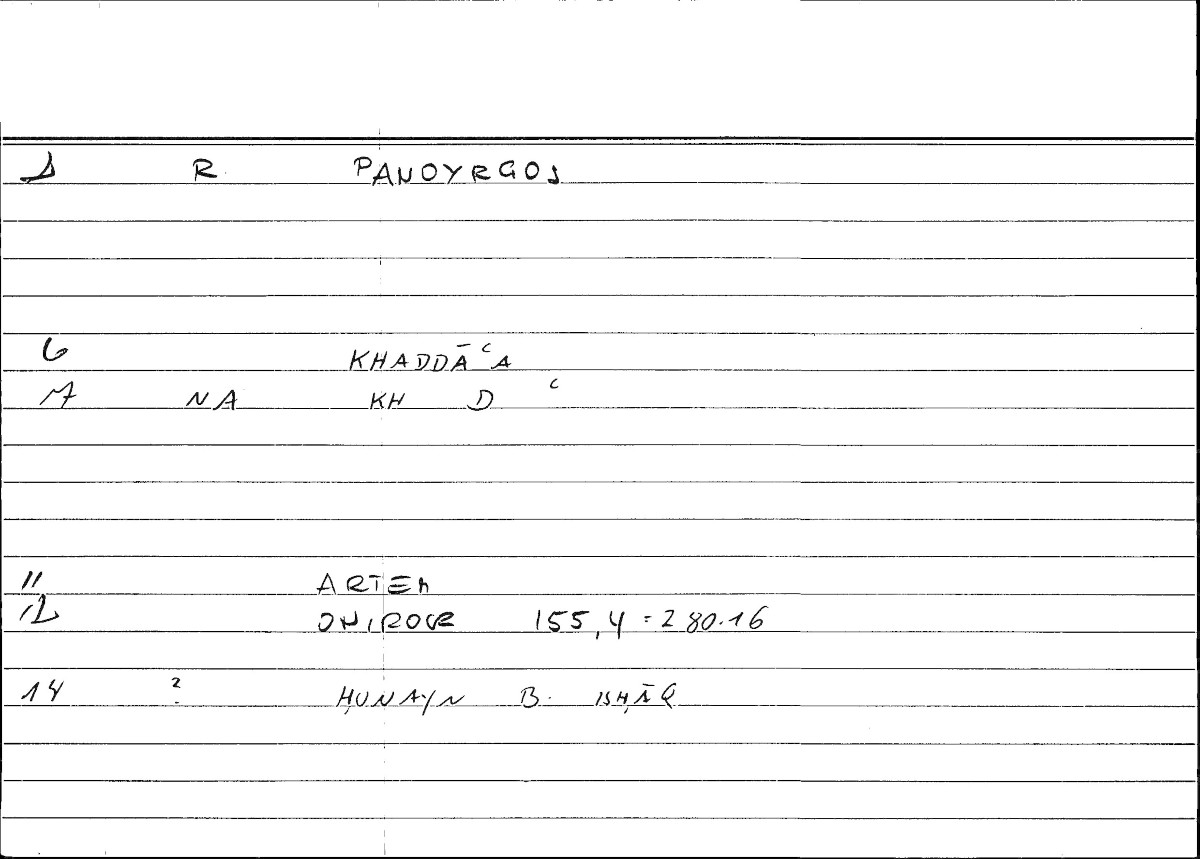 1 R PANOYRGOS
6 KHADDĀʿA
7 NA KH D ʿ
11 ARTEM
12 ONIROCR 155,4 = 280.16
14 ? ḤUNAYN B. ISḤĀQ